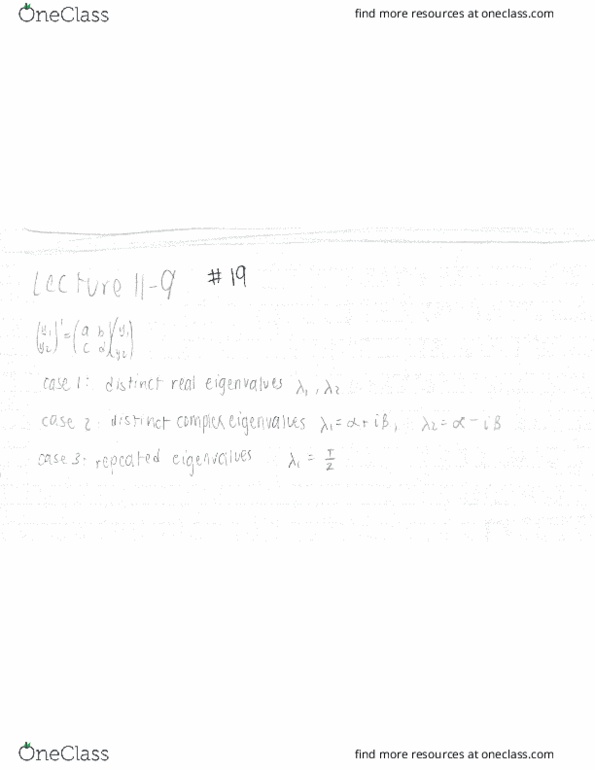 OneClass find more resources at oneclass.com
Lecture 11-9 #19
(y₁ y₂)' = (a b c d)(y₁ y₂)
case 1: distinct real eigenvalues λ₁, λ₂
case 2: distinct complex eigenvalues λ₁=α+iβ, λ₂=α-iβ
case 3: repeated eigenvalues λ₁ = T/2
OneClass find more resources at oneclass.com